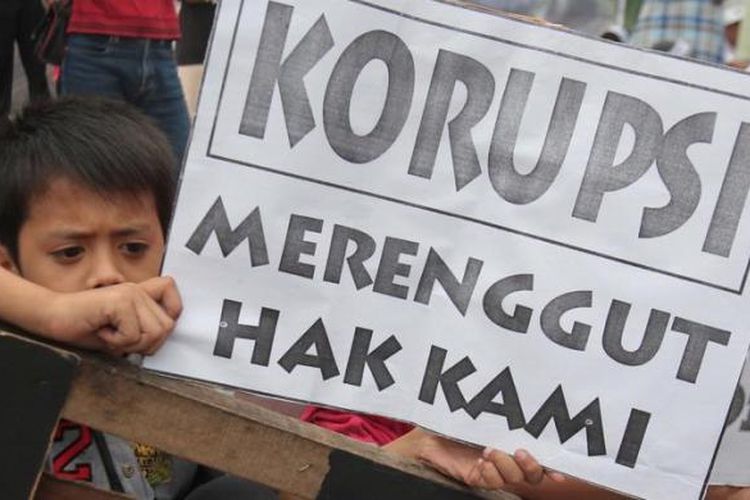 KORUPSI
MERENGGUT
HAK KAMI
2